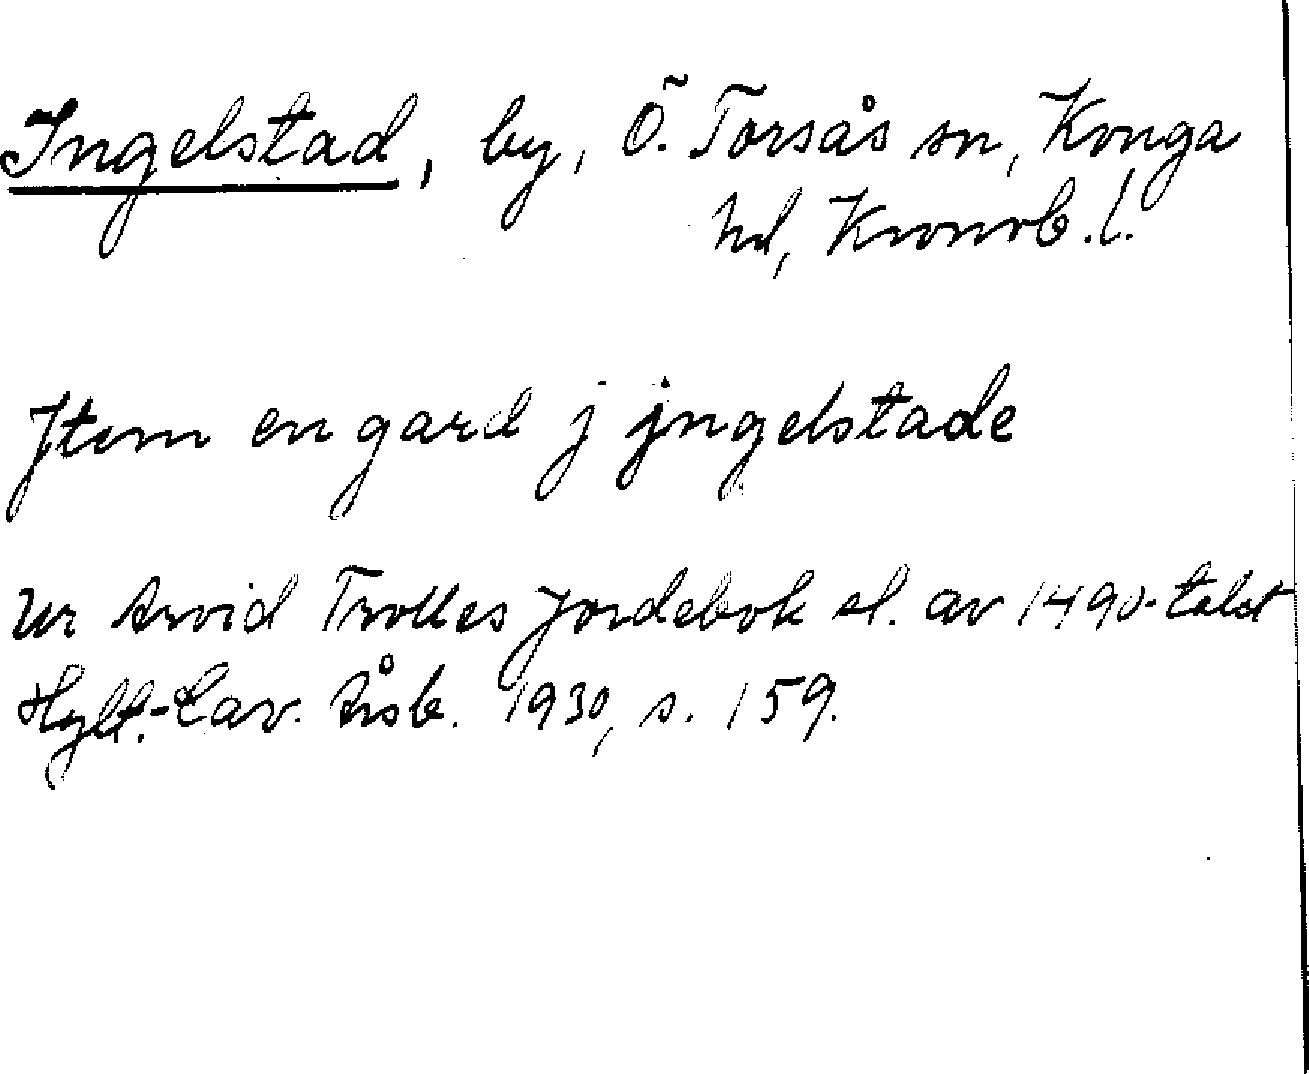 Ingelstad, by, Ö. Torsås sn, Konga
hd, Kronob. l.
Jtem en gard j jngelstade
Ur Arvid Trolles jordebok sl. av 1490-talet
Hylt.-Cav. Årsb. 1930, s. 159.